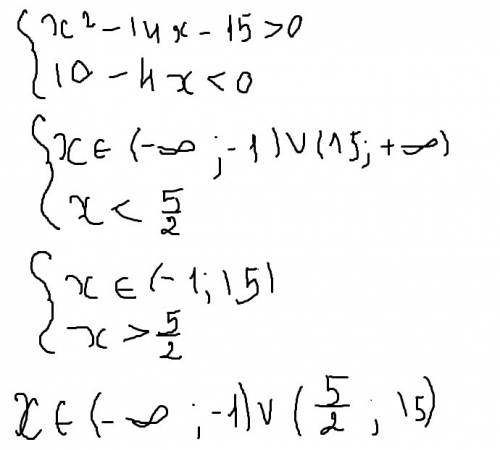 { x² - 14x - 15 > 0
{ 10 - 4x < 0
{ x ∈ (-∞ ; -1) ∨ (15; +∞)
{ x < 5/2
{ x ∈ (-1; 15)
{ x > 5/2
x ∈ (-∞ ; -1) ∨ (5/2 ; 15)